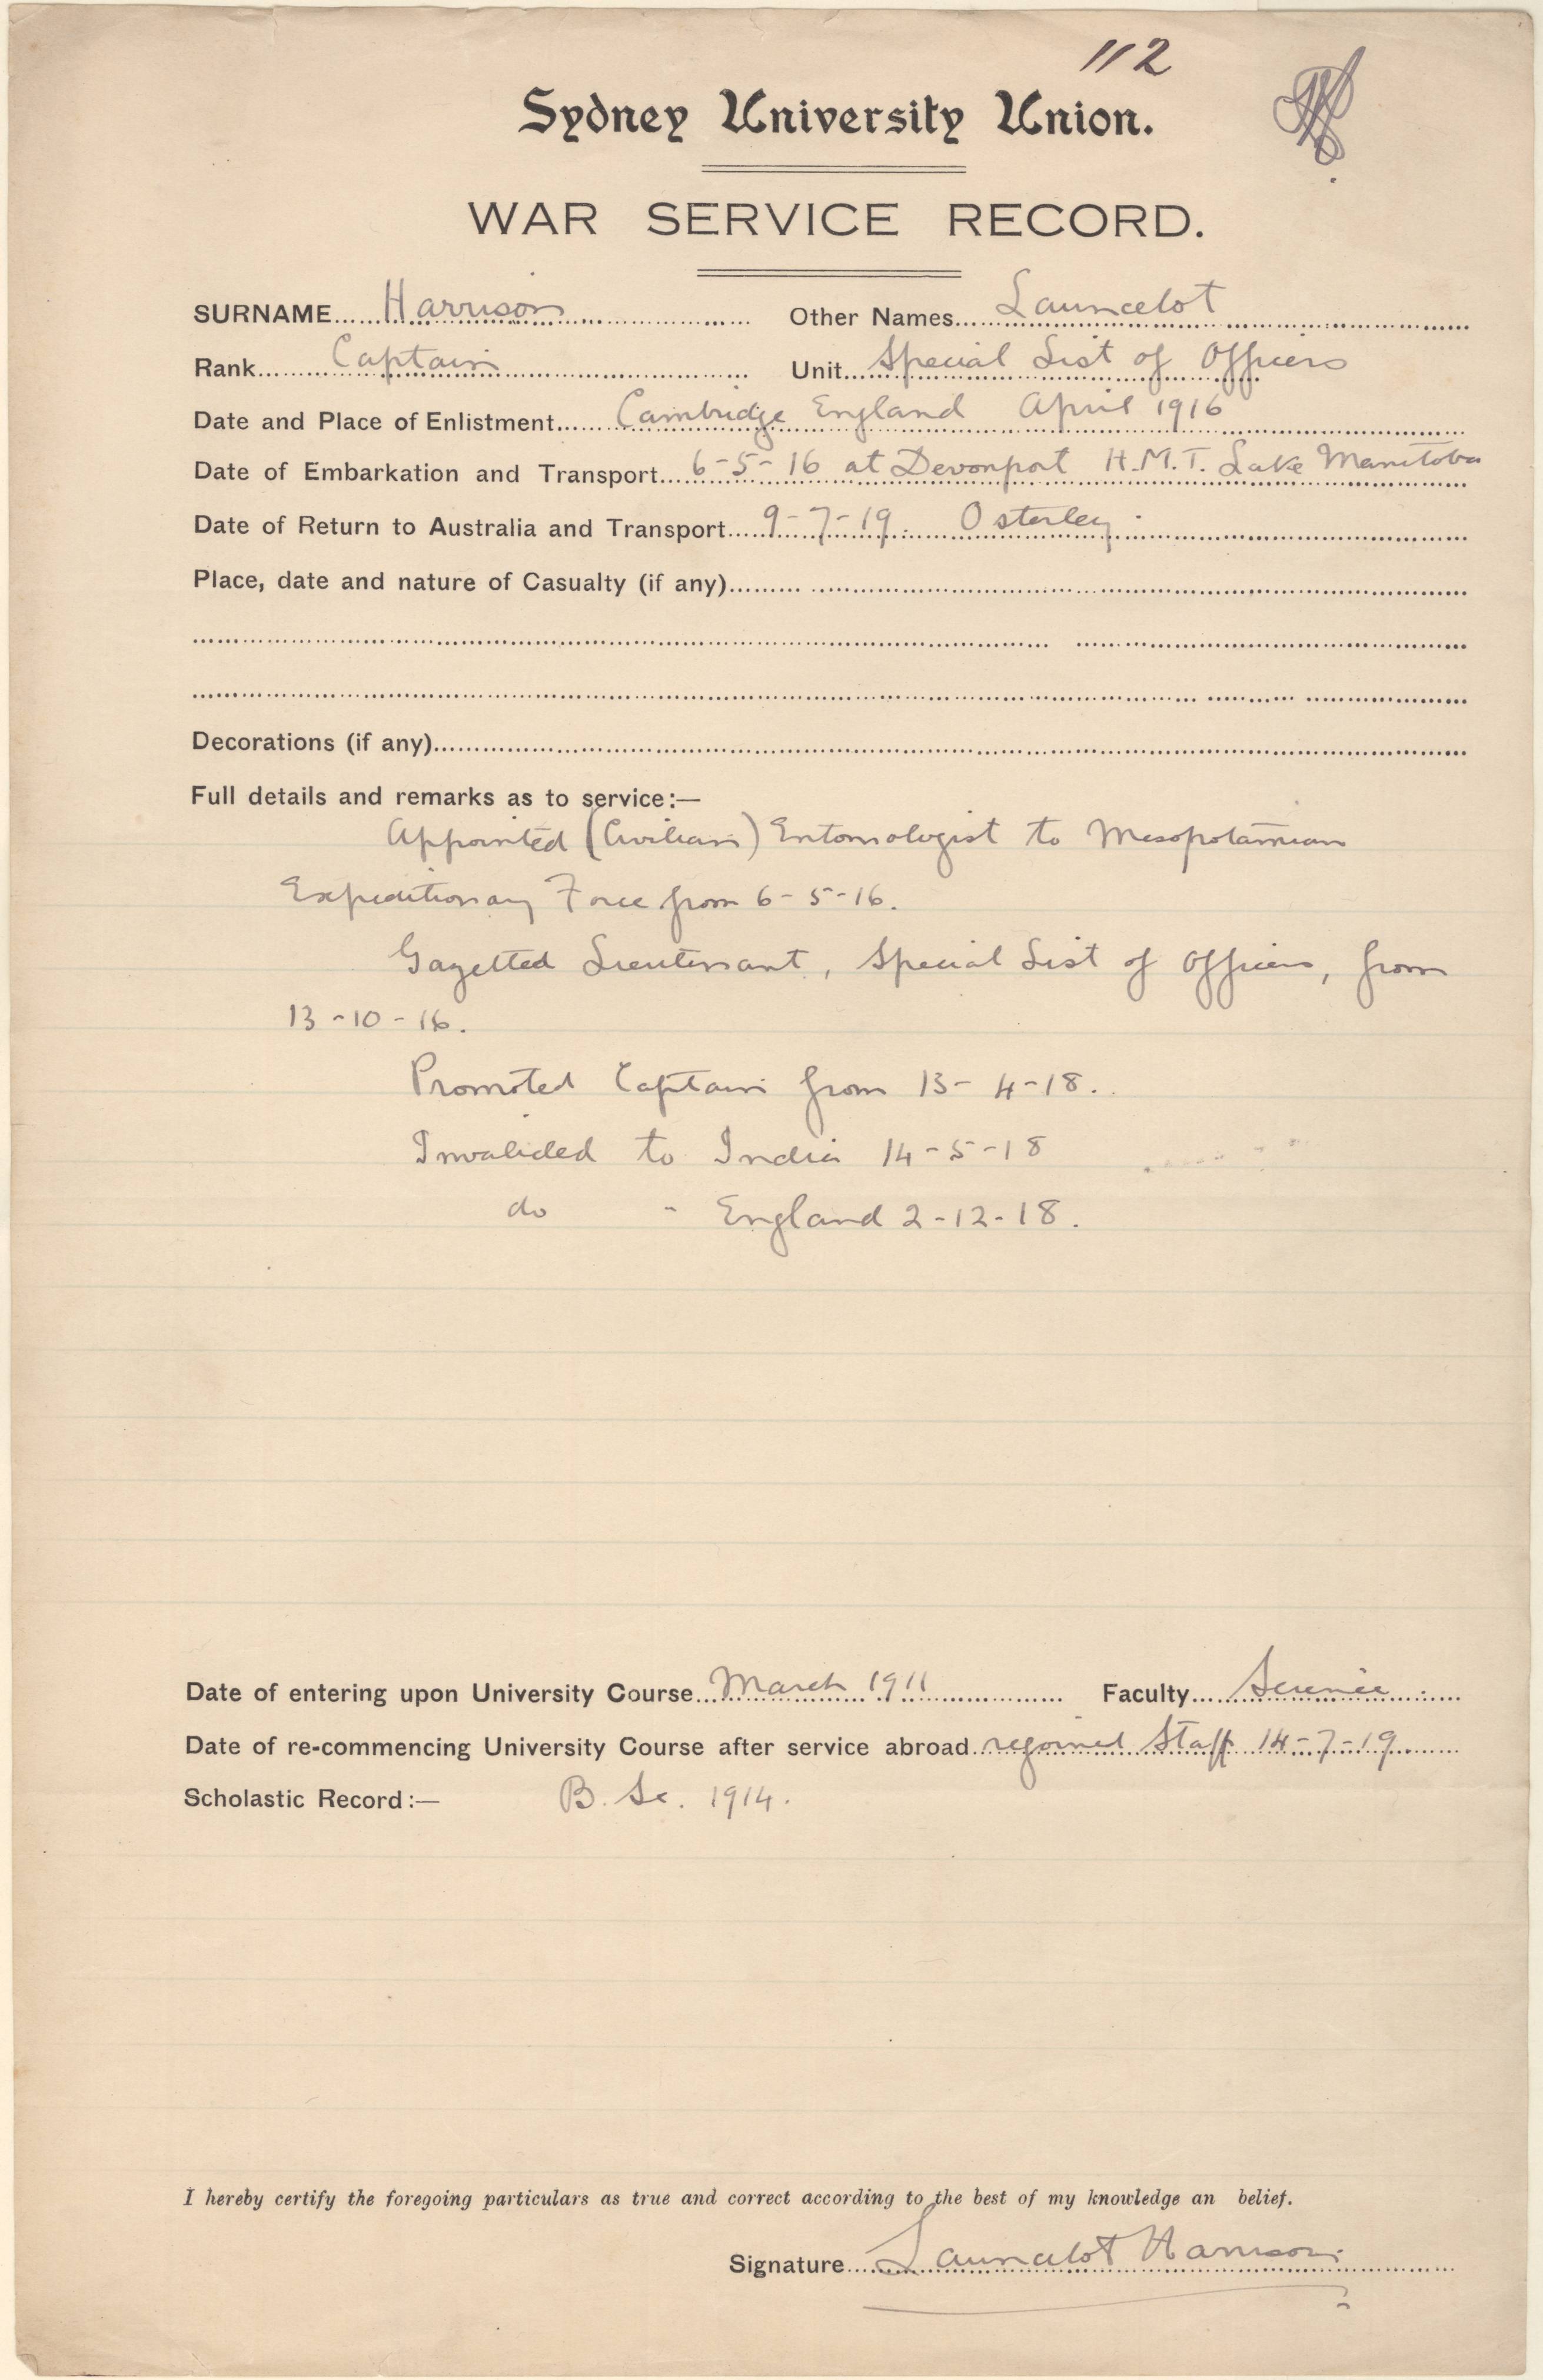 112
Sydney University Union.
WAR SERVICE RECORD.
SURNAME Harrison Other Names Launcelot
Rank Captain Unit Special List of Officers
Date and Place of Enlistment Cambridge England April 1916
Date of Embarkation and Transport 6-5-16 at Devonport H.M.T. Lake Manitoba
Date of Return to Australia and Transport 9-7-19. Osterley.
Place, date and nature of Casualty (if any)
Decorations (if any)
Full details and remarks as to service:—
Appointed (Civilian) Entomologist to Mesopotamian
Expeditionary Force from 6-5-16.
Gazetted Lieutenant, Special List of Officers, from
13-10-16.
Promoted Captain from 13-4-18.
Invalided to India 14-5-18
do " England 2-12-18.
Date of entering upon University Course March 1911 Faculty Science
Date of re-commencing University Course after service abroad rejoined Staff 14-7-19.
Scholastic Record:— B. Sc. 1914.
I hereby certify the foregoing particulars as true and correct according to the best of my knowledge an belief.
Signature Launcelot Harrison